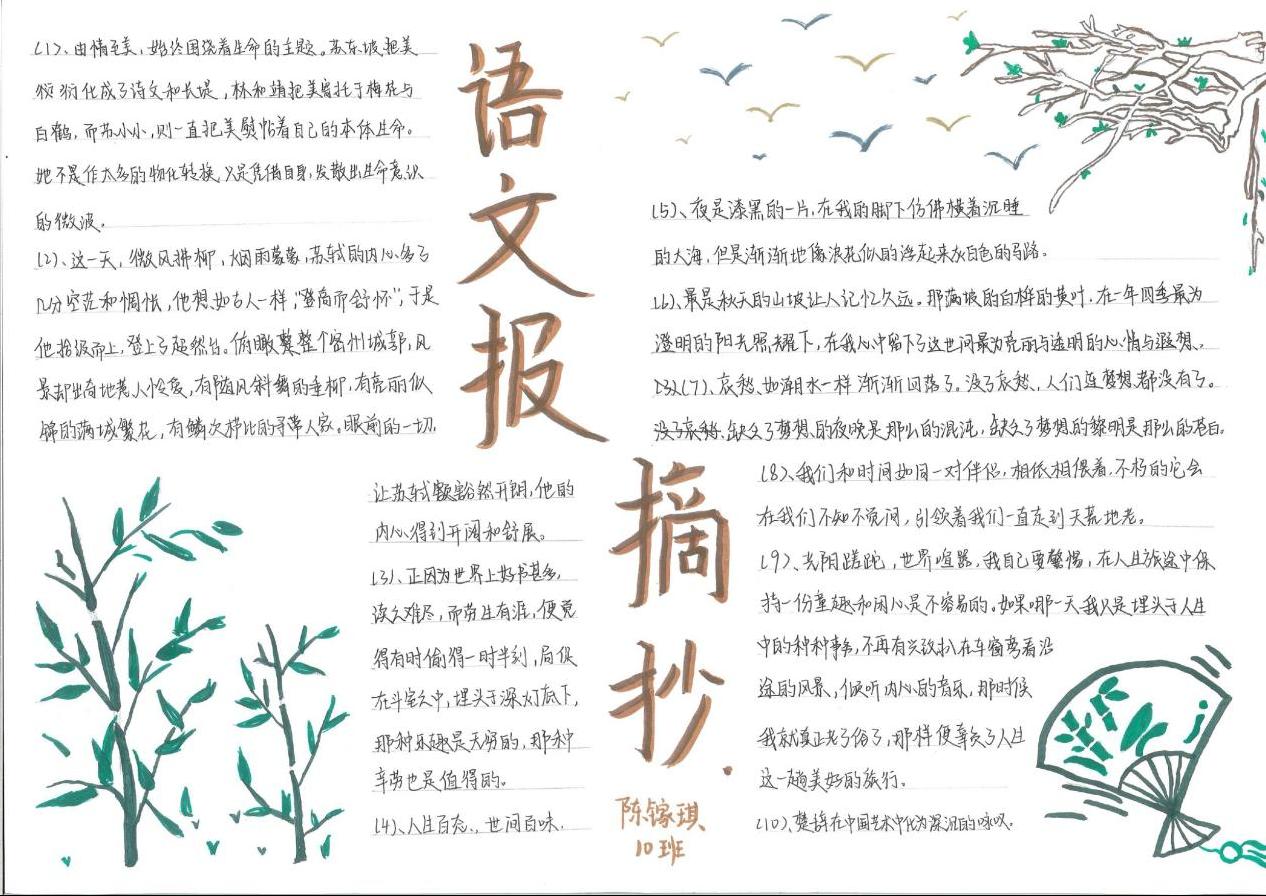 语文报
摘抄
(1)、由情至美,始终围绕着生命的主题。苏东坡把美
衍化成了诗文和长堤,林和靖把美寄托于梅花与
白鹤,而苏小小,则一直把美熨帖着自己的本体生命。
她不是作太多的物化转换,只是凭借自身,发散出生命意识
的微波。
(2)、这一天,微风拂柳,烟雨蒙蒙,苏轼的内心多了
几分空茫和惆怅,他想如古人一样,"登高而舒怀",于是
他拾级而上,登上了超然台。俯瞰整整个密州城郭,风
景却出奇地惹人怜爱,有随风斜舞的垂柳,有亮丽似
锦的满城繁花,有鳞次栉比的寻常人家。眼前的一切,
让苏轼豁然开朗,他的
内心得到开阔和舒展。
(3)、正因为世界上好书甚多,
读之难尽,而劳生有涯,便觉
得有时偷得一时半刻,局促
在斗室之中,埋头于深灯底下,
那种乐趣是无穷的,那种
辛劳也是值得的。
(4)、人生百态,世间百味.
(5)、夜是漆黑的一片,在我的脚下仿佛横着沉睡
的大海,但是渐渐地像浪花似的浮起来灰白色的马路。
(6)、最是秋天的山坡让人记忆久远。那满坡的白桦的黄叶,在一年四季最为
澄明的阳光照耀下,在我心中留下了这世间最为亮丽与透明的心情与遐想、
(7)、哀愁、如潮水一样渐渐回落了。没了哀愁、人们连梦想都没有了。
没了哀愁、缺少了梦想的夜晚是那么的混沌,缺少了梦想的黎明是那么的苍白。
(8)、我们和时间如同一对伴侣,相依相偎着,不朽的它会
在我们不知不觉间,引领着我们一直走到天荒地老。
(9)、光阴蹉跎,世界喧嚣,我自己要警惕,在人生旅途中保
持一份童趣和闲心是不容易的。如果哪一天我只是埋头于人生
中的种种事务,不再有兴致扒在车窗旁看沿
途的风景,倾听内心的音乐,那时候
我就真正老了俗了,那样便辜负了人生
这一趟美好的旅行。
(10)、楚辞在中国艺术中化为深沉的咏叹.
陈镓琪
10班